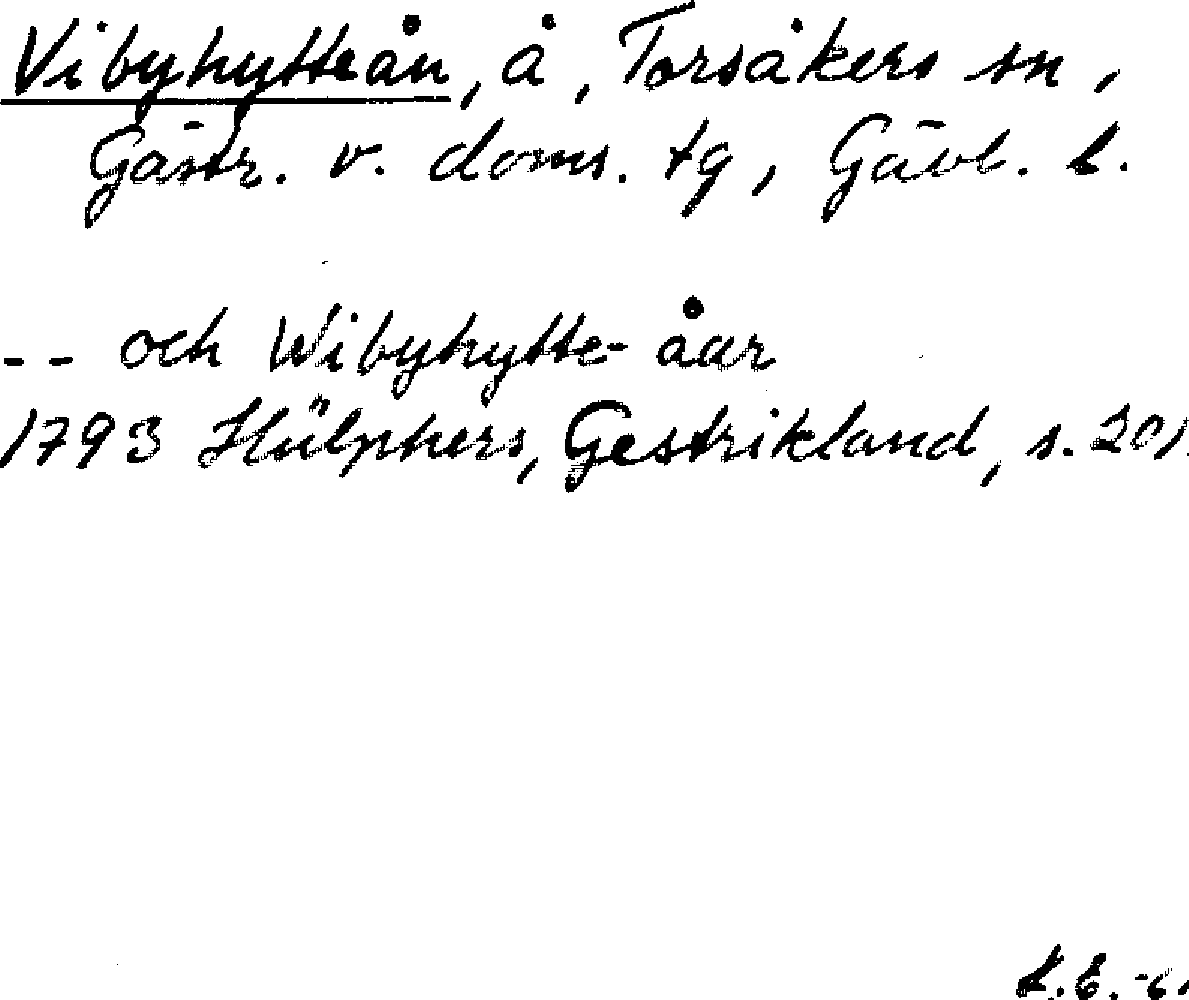 Vibyhytteån, å, Torsåkers sn,
Gästr. v. doms. tg, Gävl. l.
-- och Wibyhytte-åar
1793 Hülphers, Gestrikland, s. 201.